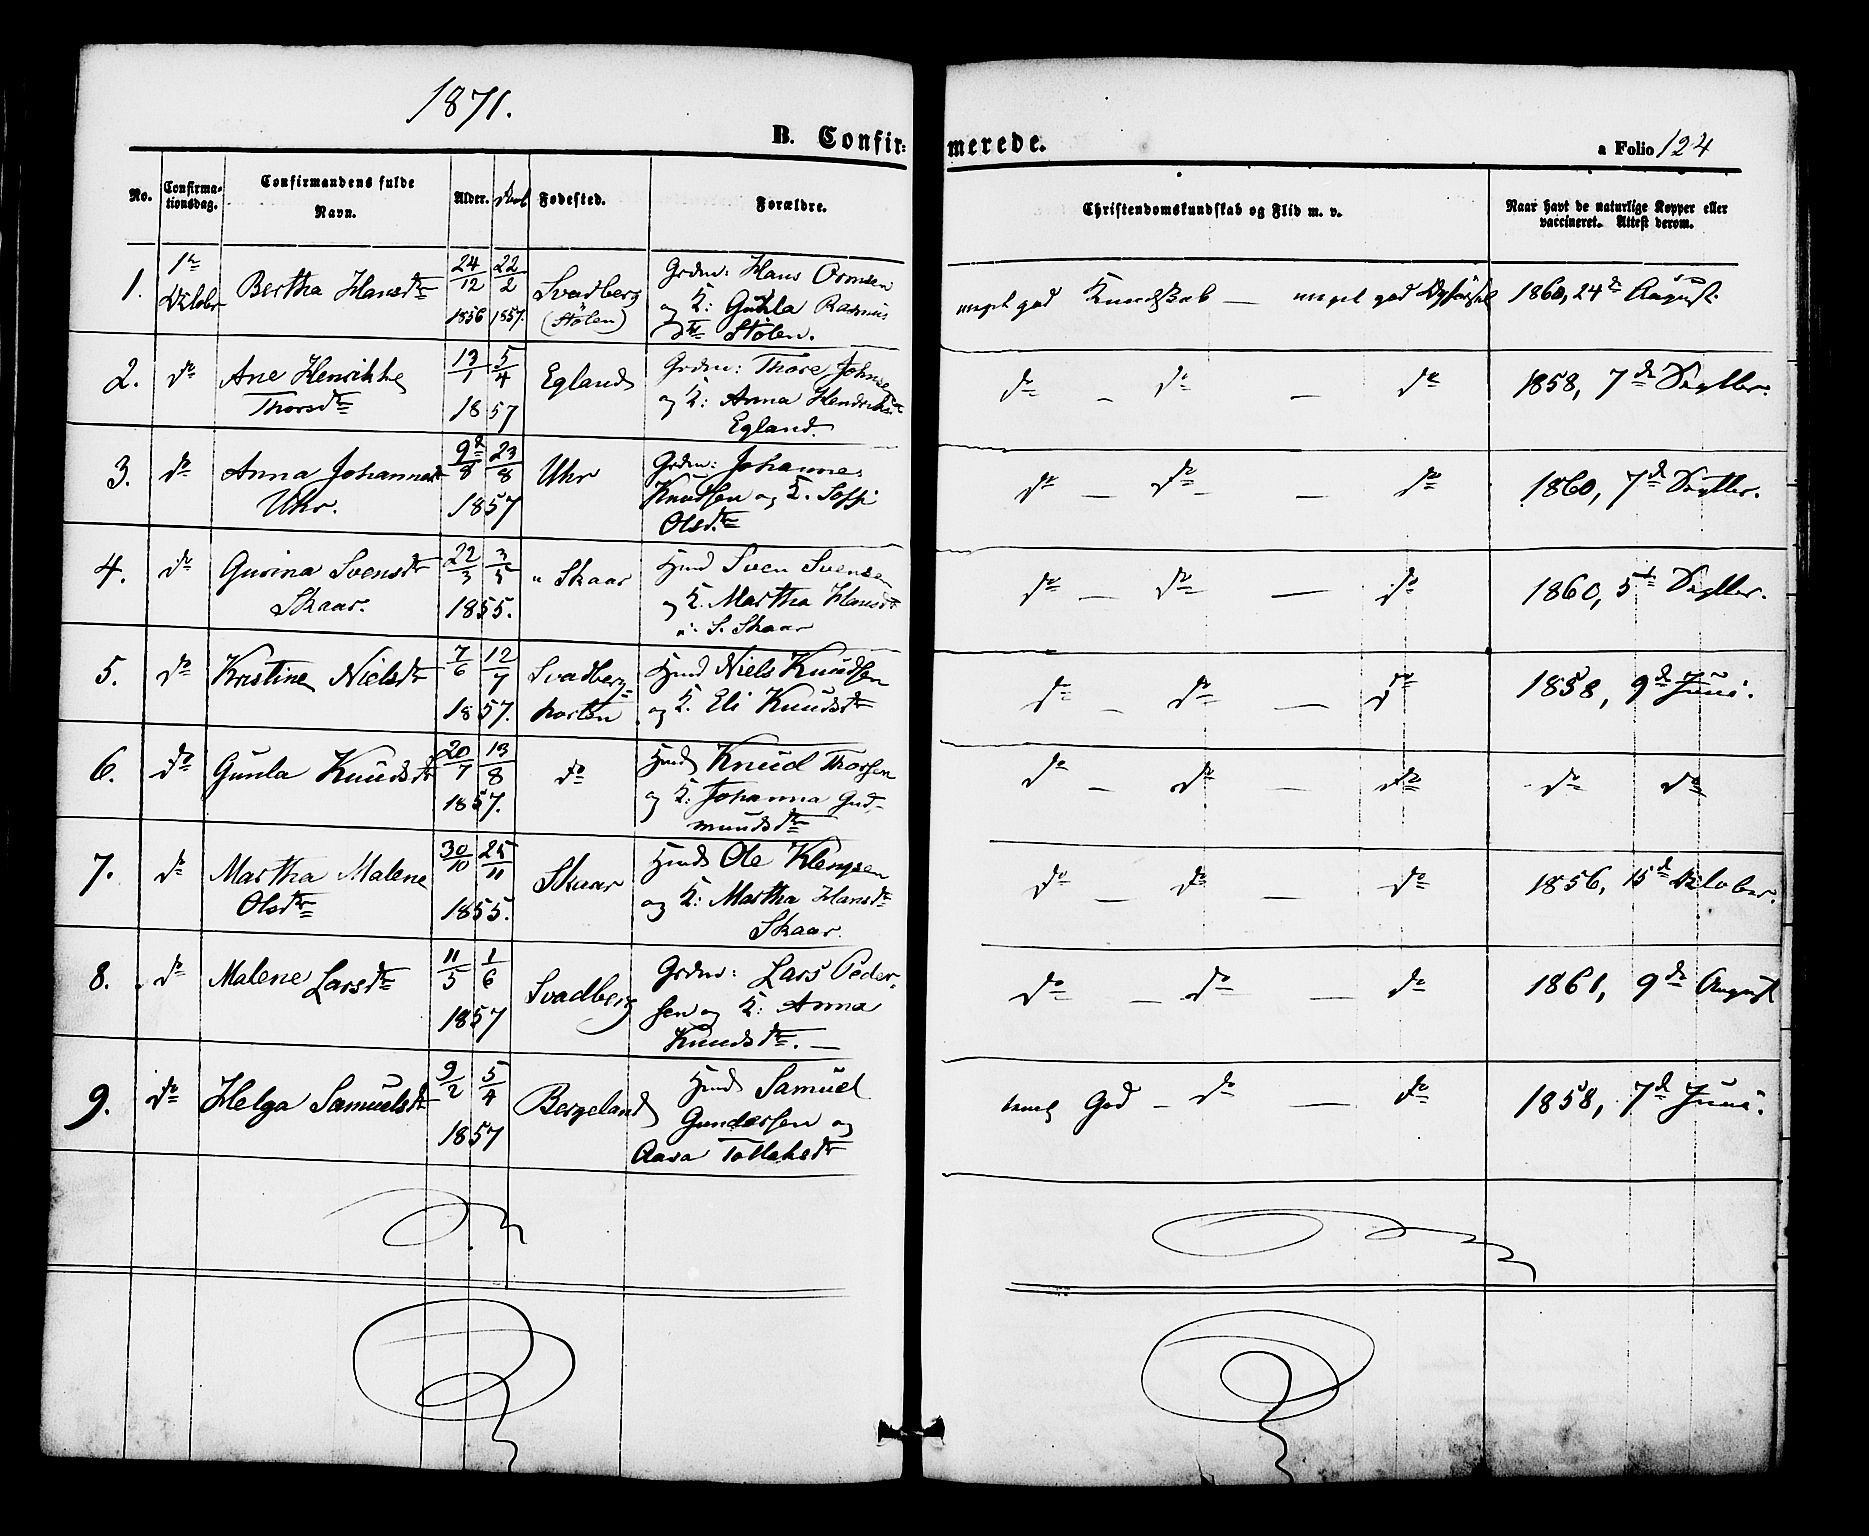 1871.
B. Confir-
merede.
a Folio 124
No.
Confirma-
tionsdag.
Confirmandens fulde
Navn.
Alder.
Daab
Fødested.
Forældre.
Christendomskundskab og Flid m. v.
Naar havt de naturlige Kopper eller
vaccineret. Attest derom.
1.
1te
Oktober
Bertha Hansdtr
24/12 22/2
1856 1857.
Svadberg
(Stølen)
Grdm: Hans Ormsen
og K: Gunla Rasmus
dtr Stølen.
meget god Kundskab — meget god Opførsel
1860, 24de August.
2.
do
Ane Henrikke
Thorsdtr
13/1 5/4
1857
Egland
Grdm: Thore Johnsen
og K: Anna Hendriks
Egland.
do — do — do
1858, 7de Septbr.
3.
do
Anna Johannesdtr
Uhr.
9de/8 23/8
1857
Uhr
Grdm: Johannes
Knudsen og K. Soffi
Olsdtr
do — do — do
1860, 7de Septbr.
4.
do
Gurina Svensdtr
Skaar.
22/3 3/5
1855.
" Skaar
Hmd Sven Svensen
og K. Martha Hansdtr
S. Skaar
do — do — do
1860, 5te Septbr.
5.
do
Kristine Nielsdtr
7/6 12/7
1857.
Svadberg-
horten
Hmd Niels Knudsen
og K. Eli Knudsdtr
do — do — do
1858, 9de Juni.
6.
do
Gunla Knudsdtr
20/7 13/8
1857.
do
Hmd Knud Thorsen
og K: Johanna Gud-
mundsdtr
do — do — do
do do
7.
do
Martha Malene
Olsdtr
30/10 25/11
1855.
Skaar
Hmd Ole Klemsen
og K: Martha Hansdtr
Skaar.
do — do — do
1856, 15de Oktober.
8.
do
Malene Larsdtr
11/5 1/6
1857
Svadberg
Grdm: Lars Peder-
sen og K: Anna
Knudsdtr. —
do — do — do
1861, 9de August
9.
do
Helga Samuelsdtr
9/2 5/4
1857
Bergeland
Hmd Samuel
Gundersen og
Aasa Tollaksdtr
God — do — do
1858, 7de Juni.